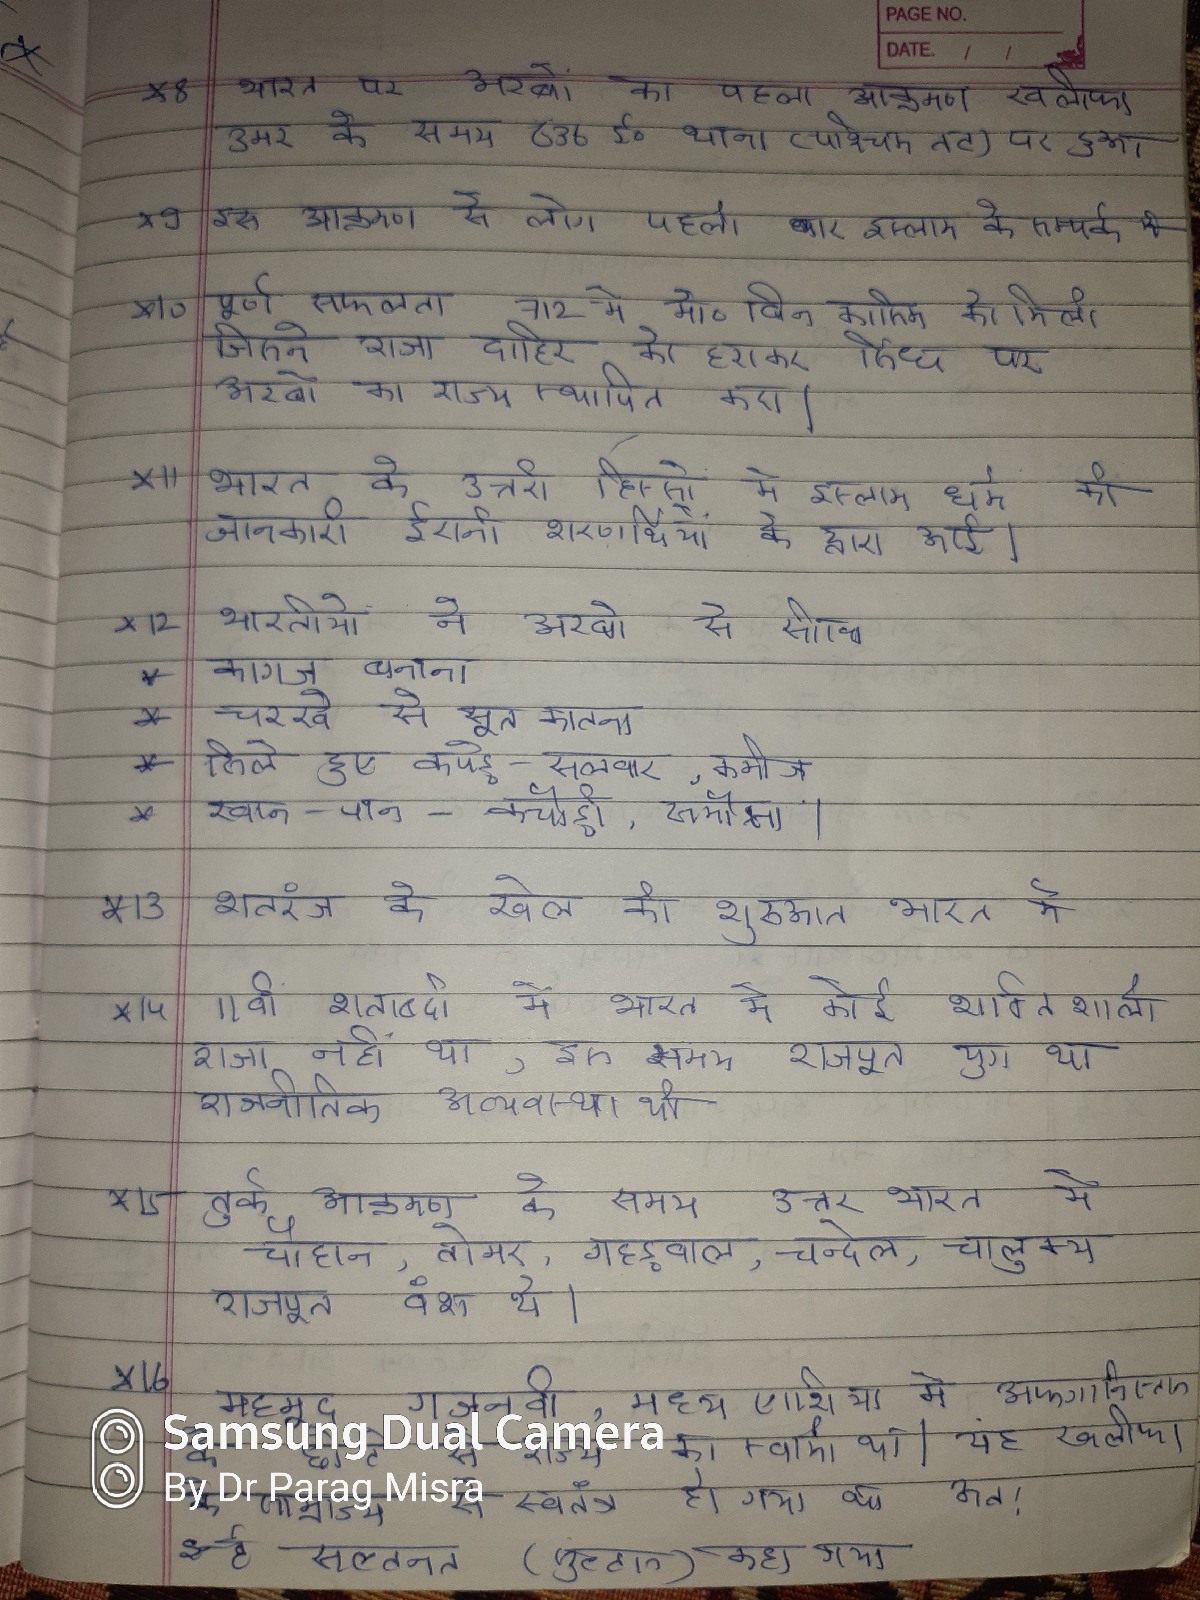 PAGE NO.
DATE. / /
*8 भारत पर अरबों का पहला आक्रमण खलीफा
उमर के समय 636 ई० थाना (पश्चिम तट) पर हुआ
*9 इस आक्रमण से लोग पहली बार इस्लाम के सम्पर्क में
*10 पूर्ण सफलता 712 मे मो० बिन कासिम को मिली
जिसने राजा दाहिर को हराकर सिंध पर
अरबों का राज्य स्थापित करा।
*11 भारत के उत्तरी हिस्सों मे इस्लाम धर्म की
जानकारी ईरानी शरणार्थियों के द्वारा आई।
*12 भारतीयो ने अरबो से सीखा
* कागज बनाना
* चरखे से सूत कातना
* सिले हुए कपड़े - सलवार, कमीज
* खान - पान - कचौड़ी, समौसा।
*13 शतरंज के खेल की शुरुआत भारत में
*14 11वी शताब्दी में भारत मे कोई शक्तिशाली
राजा नहीं था, इस समय राजपूत युग था
राजनीतिक अव्यवस्था थी
*15 तुर्क आक्रमण के समय उत्तर भारत मे
चौहान, तोमर, गहड़वाल, चन्देल, चालुक्य
राजपूत वंश थे।
*16
महमूद गजनवी, मध्य एशिया मे अफगानिस्तान
के छोटे से राज्य का स्वामी था। यह खलीफा
के साम्राज्य से स्वतंत्र हो गया था अतः
इन्हे सल्तनत (सुल्तान) कहा गया
Samsung Dual Camera
By Dr Parag Misra